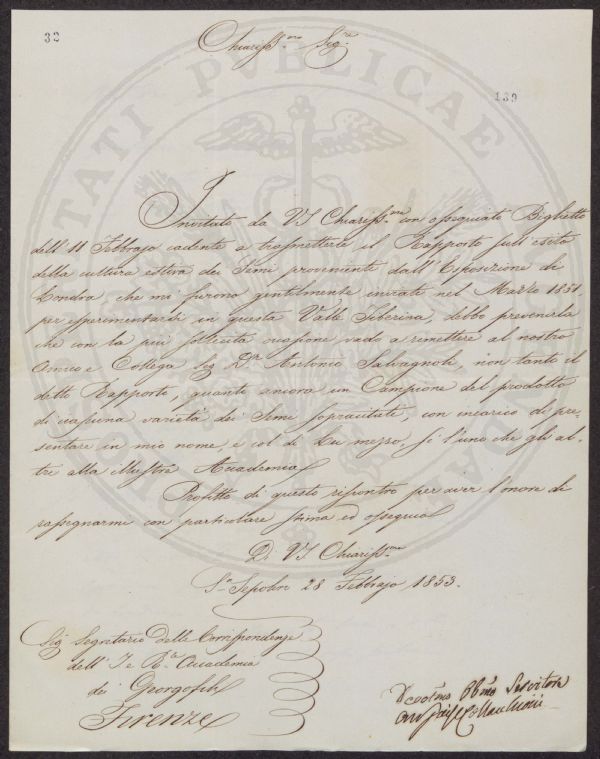 32
Chiariss.mo Sig.re
139
Invitato da VS Chiariss.ma con ossequiato Biglietto
dell' 11 Febbrajo cadente a trasmetterle il Rapporto sull'esito
della cultura estiva dei Semi provenienti dall'Esposizione di
Londra, che mi furono gentilmente inviati nel Marzo 1851.
per esperimentarli in questa Valle Tiberina, debbo prevenirla
che con la più sollecita occasione vado a rimettere al nostro
Amico e Collega Sig Dr Antonio Salvagnoli, non tanto il
detto Rapporto, quanto ancora un Campione del prodotto
di ciascuna varietà dei Semi sopracitati, con incarico di pre-
sentare in mio nome, e col di Lui mezzo, sì l'uno che gli al-
tre alla Illustre Accademia
Profitto di questo riscontro per aver l'onore di
rassegnarmi con particolare stima ed ossequio
Di VS Chiariss.ma
S. Sepolcro 28 Febbrajo 1853.
Sig Segretario delle Corrispondenze
dell' I e R.e Accademia
dei Georgofili
Firenze
Devotmo Obbmo Servitore
PUBLICAE